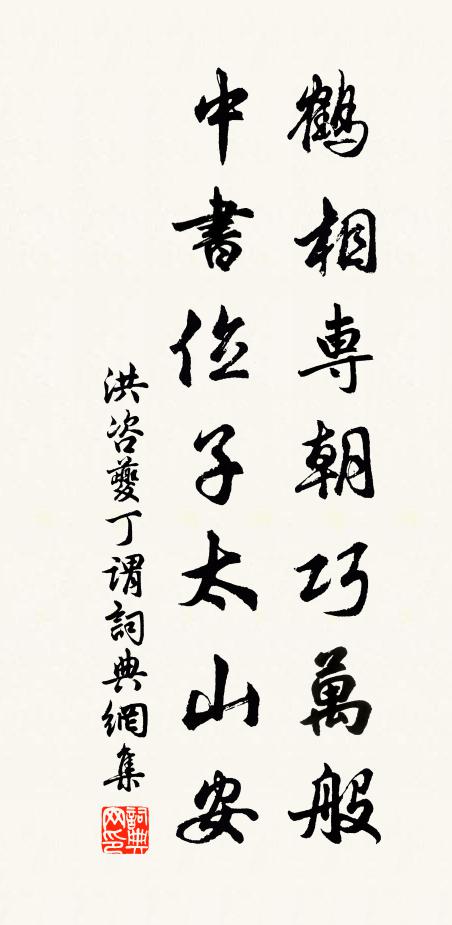 鶴相専朝巧萬般
中書位子太山安
洪咨夔丁謂詞典網集
詞典网印